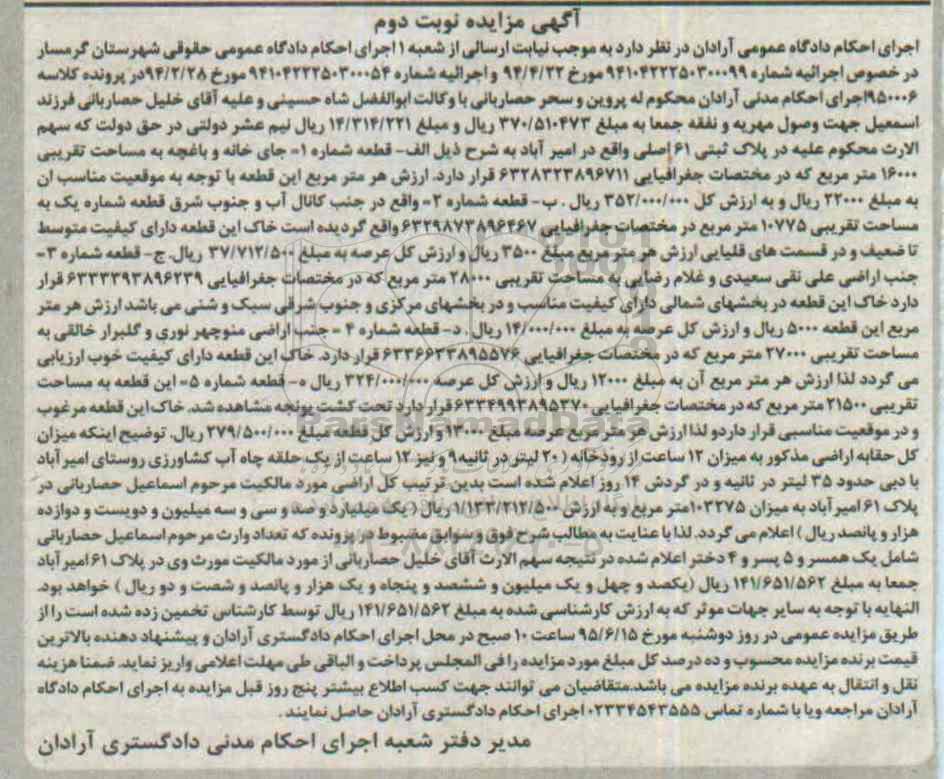 آگهی مزایده نوبت دوم
اجرای احکام دادگاه عمومی آرادان در نظر دارد به موجب نیابت ارسالی از شعبه ۱ اجرای احکام دادگاه عمومی حقوقی شهرستان گرمسار
در خصوص اجرائیه شماره ۹۴۱۰۴۲۲۲۵۰۳۰۰۰۹۹ مورخ ۹۴/۴/۲۲ و اجرائیه شماره ۹۴۱۰۴۲۲۲۵۰۳۰۰۰۵۴ مورخ ۹۴/۲/۲۸در پرونده کلاسه
۹۵۰۰۰۶اجرای احکام مدنی آرادان محکوم له پروین و سحر حصاربانی با وکالت ابوالفضل شاه حسینی و علیه آقای خلیل حصاربانی فرزند
اسمعیل جهت وصول مهریه و نفقه جمعا به مبلغ ۳۷۰/۵۱۰۴۷۳ ریال و مبلغ ۱۴/۳۱۴/۲۲۱ ریال نیم عشر دولتی در حق دولت که سهم
الارث محکوم علیه در پلاک ثبتی ۶۱ اصلی واقع در امیر آباد به شرح ذیل الف- قطعه شماره ۱= جای خانه و باغچه به مساحت تقریبی
۱۶۰۰۰ متر مربع که در مختصات جغرافیایی ۶۳۲۸۳۲۳۸۹۶۷۱۱ قرار دارد. ارزش هر متر مربع این قطعه با توجه به موقعیت مناسب ان
به مبلغ ۲۲۰۰۰ ریال و به ارزش کل ۳۵۲/۰۰۰/۰۰۰ ریال . ب- قطعه شماره ۲= واقع در جنب کانال آب و جنوب شرق قطعه شماره یک به
مساحت تقریبی ۱۰۷۷۵ متر مربع در مختصات جغرافیایی ۶۳۲۹۸۷۳۸۹۶۴۶۷ واقع گردیده است خاک این قطعه دارای کیفیت متوسط
تا ضعیف و در قسمت های قلیایی ارزش هر متر مربع مبلغ ۳۵۰۰ ریال و ارزش کل عرصه به مبلغ ۳۷/۷۱۲/۵۰۰ ریال. ج- قطعه شماره ۳=
جنب اراضی علی نقی سعیدی و غلام رضایی به مساحت تقریبی ۲۸۰۰۰ متر مربع که در مختصات جغرافیایی ۶۳۳۳۳۹۳۸۹۶۲۳۹ قرار
دارد خاک این قطعه در بخشهای شمالی دارای کیفیت مناسب و در بخشهای مرکزی و جنوب شرقی سبک و شنی می باشد ارزش هر متر
مربع این قطعه ۵۰۰۰ ریال و ارزش کل عرصه به مبلغ ۱۴/۰۰۰/۰۰۰ ریال . د- قطعه شماره ۴ = جنب اراضی منوچهر نوری و گلبرار خالقی به
مساحت تقریبی ۲۷۰۰۰ متر مربع که در مختصات جغرافیایی ۶۳۳۶۶۳۳۸۹۵۵۷۶ قرار دارد. خاک این قطعه دارای کیفیت خوب ارزیابی
می گردد لذا ارزش هر متر مربع آن به مبلغ ۱۲۰۰۰ ریال و ارزش کل عرصه ۳۲۴/۰۰۰/۰۰۰ ریال ه- قطعه شماره ۵= این قطعه به مساحت
تقریبی ۲۱۵۰۰ متر مربع که در مختصات جغرافیایی ۶۳۳۴۹۹۳۸۹۵۳۷۰ قرار دارد تحت کشت یونجه مشاهده شد. خاک این قطعه مرغوب
و در موقعیت مناسبی قرار داردو لذا ارزش هر متر مربع عرصه مبلغ ۱۳۰۰۰ و ارزش کل قطعه مبلغ ۲۷۹/۵۰۰/۰۰۰ ریال. توضیح اینکه میزان
کل حقابه اراضی مذکور به میزان ۱۲ ساعت از رودخانه ( ۲۰ لیتر در ثانیه ۹ و نیز ۱۲ ساعت از یک حلقه چاه آب کشاورزی روستای امیر آباد
با دبی حدود ۳۵ لیتر در ثانیه و در گردش ۱۴ روز اعلام شده است بدین ترتیب کل اراضی مورد مالکیت مرحوم اسماعیل حصاربانی در
پلاک ۶۱ امیر آباد به میزان ۱۰۳۲۷۵متر مربع و به ارزش ۱/۱۳۳/۲۱۲/۵۰۰ ریال ( یک میلیارد و صد و سی و سه میلیون و دویست و دوازده
هزار و پانصد ریال ) اعلام می گردد. لذا با عنایت به مطالب شرح فوق و سوابق مضبوط در پرونده که تعداد وارث مرحوم اسماعیل حصاربانی
شامل یک همسر و ۵ پسر و ۴ دختر اعلام شده در نتیجه سهم الارث آقای خلیل حصاربانی از مورد مالکیت مورث وی در پلاک ۶۱ امیر آباد
جمعا به مبلغ ۱۴۱/۶۵۱/۵۶۲ ریال (یکصد و چهل و یک میلیون و ششصد و پنجاه و یک هزار و پانصد و شصت و دو ریال ) خواهد بود.
النهایه با توجه به سایر جهات موثر که به ارزش کارشناسی شده به مبلغ ۱۴۱/۶۵۱/۵۶۲ ریال توسط کارشناس تخمین زده شده است را از
طریق مزایده عمومی در روز دوشنبه مورخ ۹۵/۶/۱۵ ساعت ۱۰ صبح در محل اجرای احکام دادگستری آرادان و پیشنهاد دهنده بالاترین
قیمت برنده مزایده محسوب و ده درصد کل مبلغ مورد مزایده را فی المجلس پرداخت و الباقی طی مهلت اعلامی واریز نماید. ضمنا هزینه
نقل و انتقال به عهده برنده مزایده می باشد.متقاضیان می توانند جهت کسب اطلاع بیشتر پنج روز قبل مزایده به اجرای احکام دادگاه
آرادان مراجعه ویا با شماره تماس ۰۲۳۳۴۵۴۳۵۵۵ اجرای احکام دادگستری آرادان حاصل نمایند .
مدیر دفتر شعبه اجرای احکام مدنی دادگستری آرادان
ParsNamadData